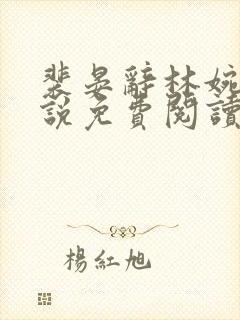 裴晏辭林婉
說免費閱讀
楊紅旭